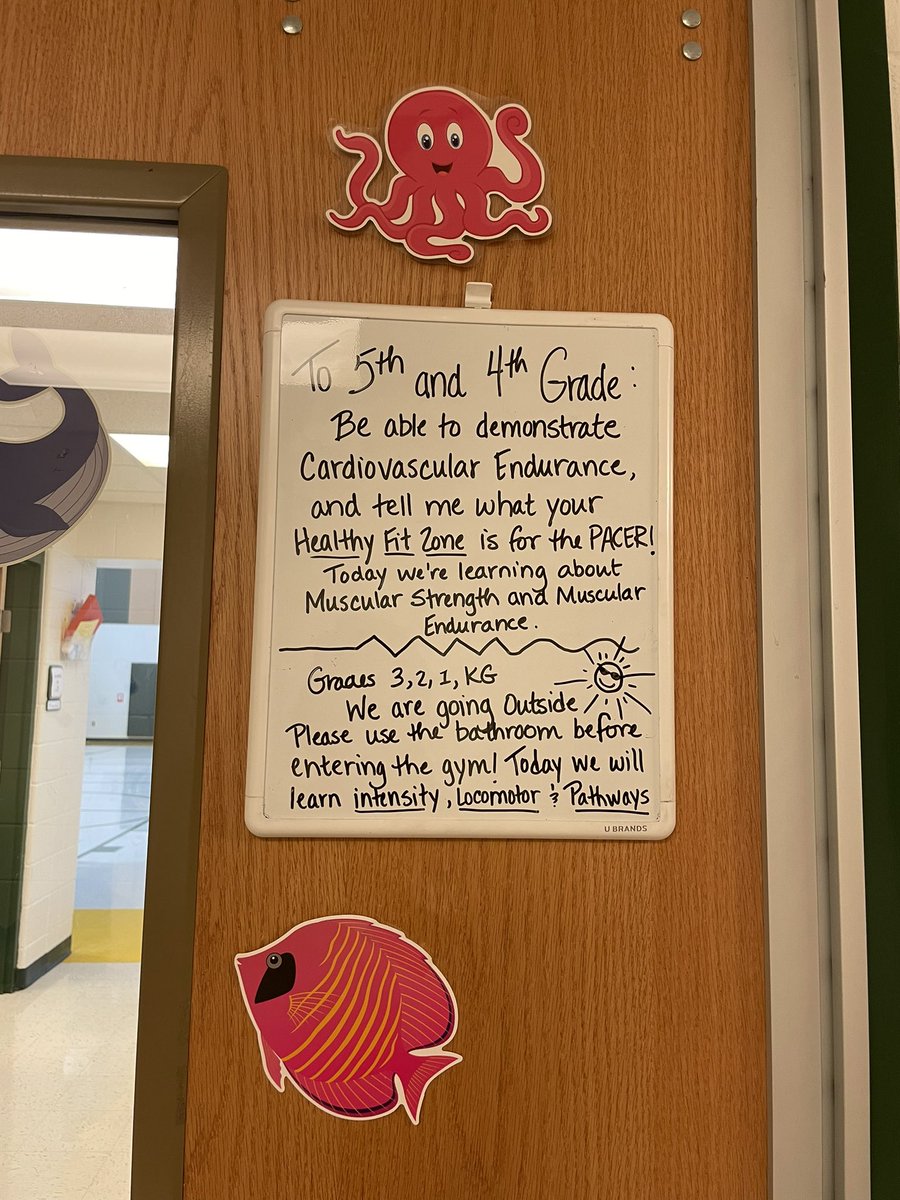 To 5th and 4th Grade:
Be able to demonstrate
Cardiovascular Endurance,
and tell me what your
Healthy Fit Zone is for the PACER!
Today we're learning about
Muscular Strength and Muscular
Endurance.
Grades 3, 2, 1, KG
We are going Outside
Please use the bathroom before
entering the gym! Today we will
learn intensity, Locomotor & Pathways
U BRANDS